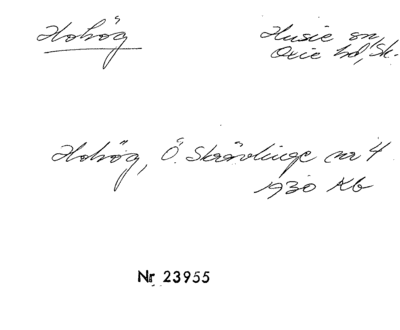 Hohög
Husie sn,
Oxie hd, Sk.
Hohög, Ö. Skrävlinge nr 4
1930 Kb
Nr 23955